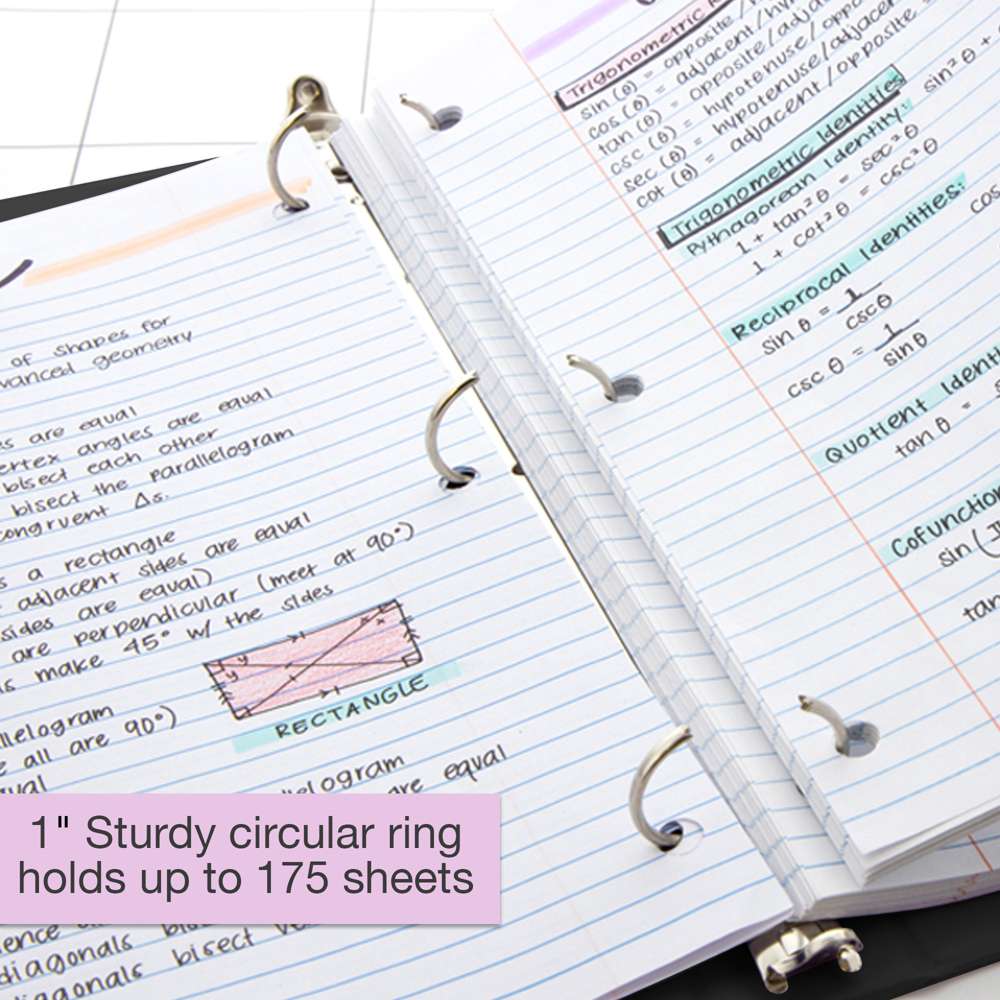 of shapes for
advanced geometry
es are equal
vertex angles are equal
bisect each other
bisect the parallelogram
congruent Δs.
s a rectangle
adjacent sides are equal
sides are equal)
are perpendicular (meet at 90°)
make 45° w/ the sides
RECTANGLE
all are 90°)
are equal
1" Sturdy circular ring
holds up to 175 sheets
diagonals
diagonals bisect
Trigonometric
sin (θ) = opposite /
cos (θ) = adjacent/hy
tan (θ) = opposite/adja
csc (θ) = hypotenuse/oppo
sec (θ) = hypotenuse/adjacen
cot (θ) = adjacent /opposite
Trigonometric Identities
Pythagorean Identity:
sin²θ +
1 + tan²θ = sec²θ
1 + cot²θ = csc²θ
Reciprocal Identities:
sin θ = 1
cscθ
cos
csc θ = 1
sinθ
Quotient Identi
tan θ =
Cofunction
sin(
tan